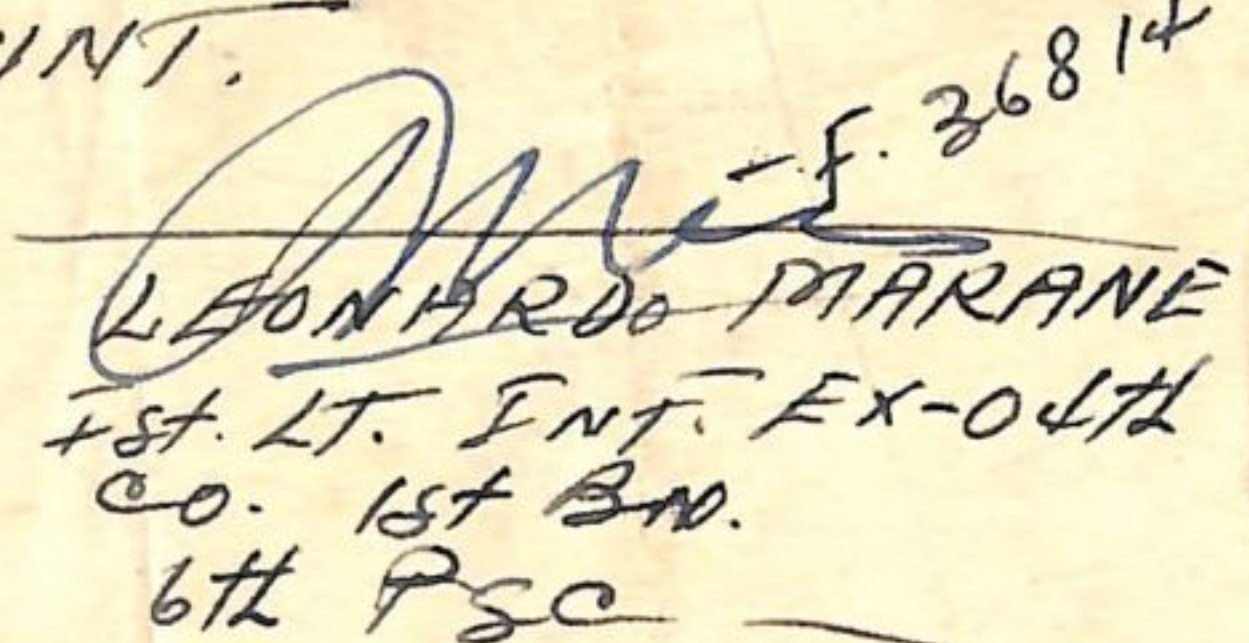 UNT.
F. 36814
LEONARDO MARANE
Ist. LT. INT. EX-04th
Co. 1st BN.
6th PSC